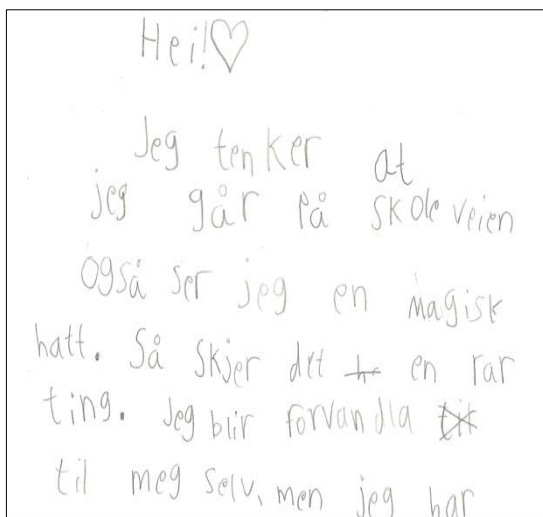 Hei!♡
Jeg tenker at
jeg går på skoleveien
også ser jeg en magisk
hatt. Så skjer det en rar
ting. Jeg blir forvandla
til meg selv, men jeg har